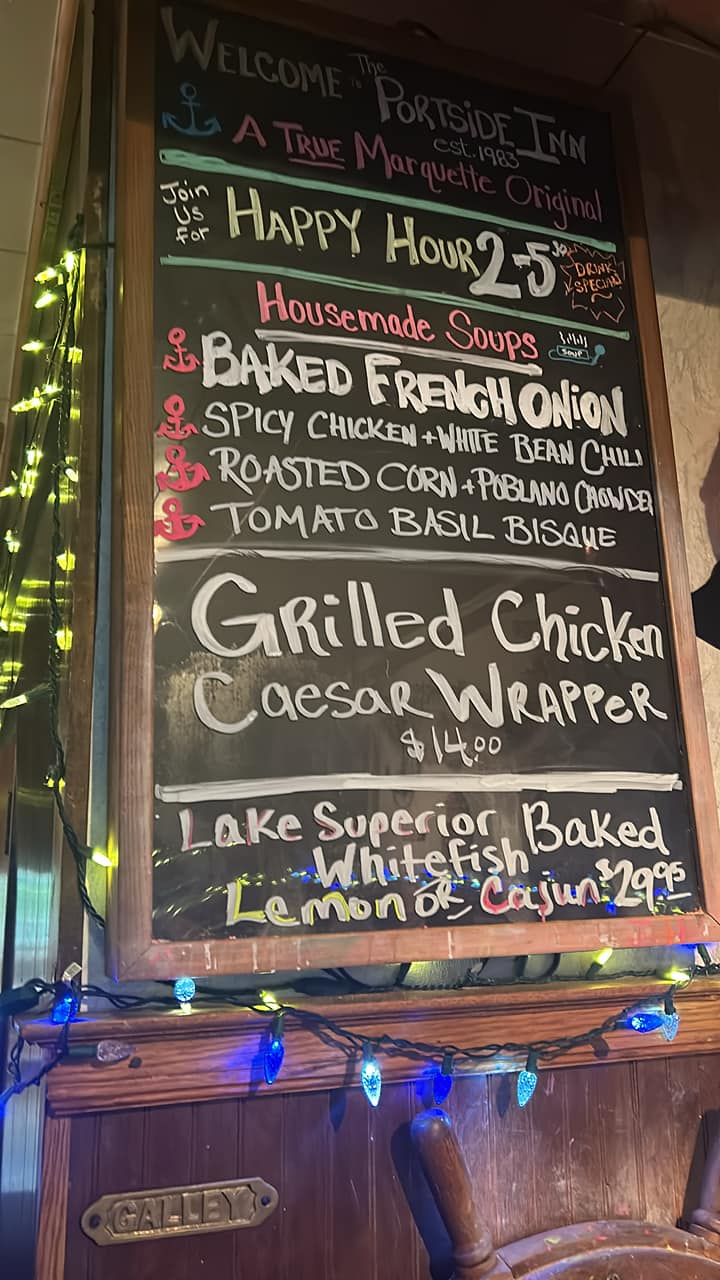 WELCOME TO The PORTSIDE INN
est. 1983
A TRUE Marquette Original
Join
Us
For
HAPPY HOUR 2-5³⁰
DRINK
SPECIALS
Housemade Soups
SOUP
BAKED FRENCH ONION
SPICY CHICKEN + WHITE BEAN CHILI
ROASTED CORN + POBLANO CHOWDER
TOMATO BASIL BISQUE
GRilled Chicken
CaesaR WRAPPeR
$14.00
Lake Superior Baked
Whitefish
Lemon OR Cajun $29⁹⁵
GALLEY